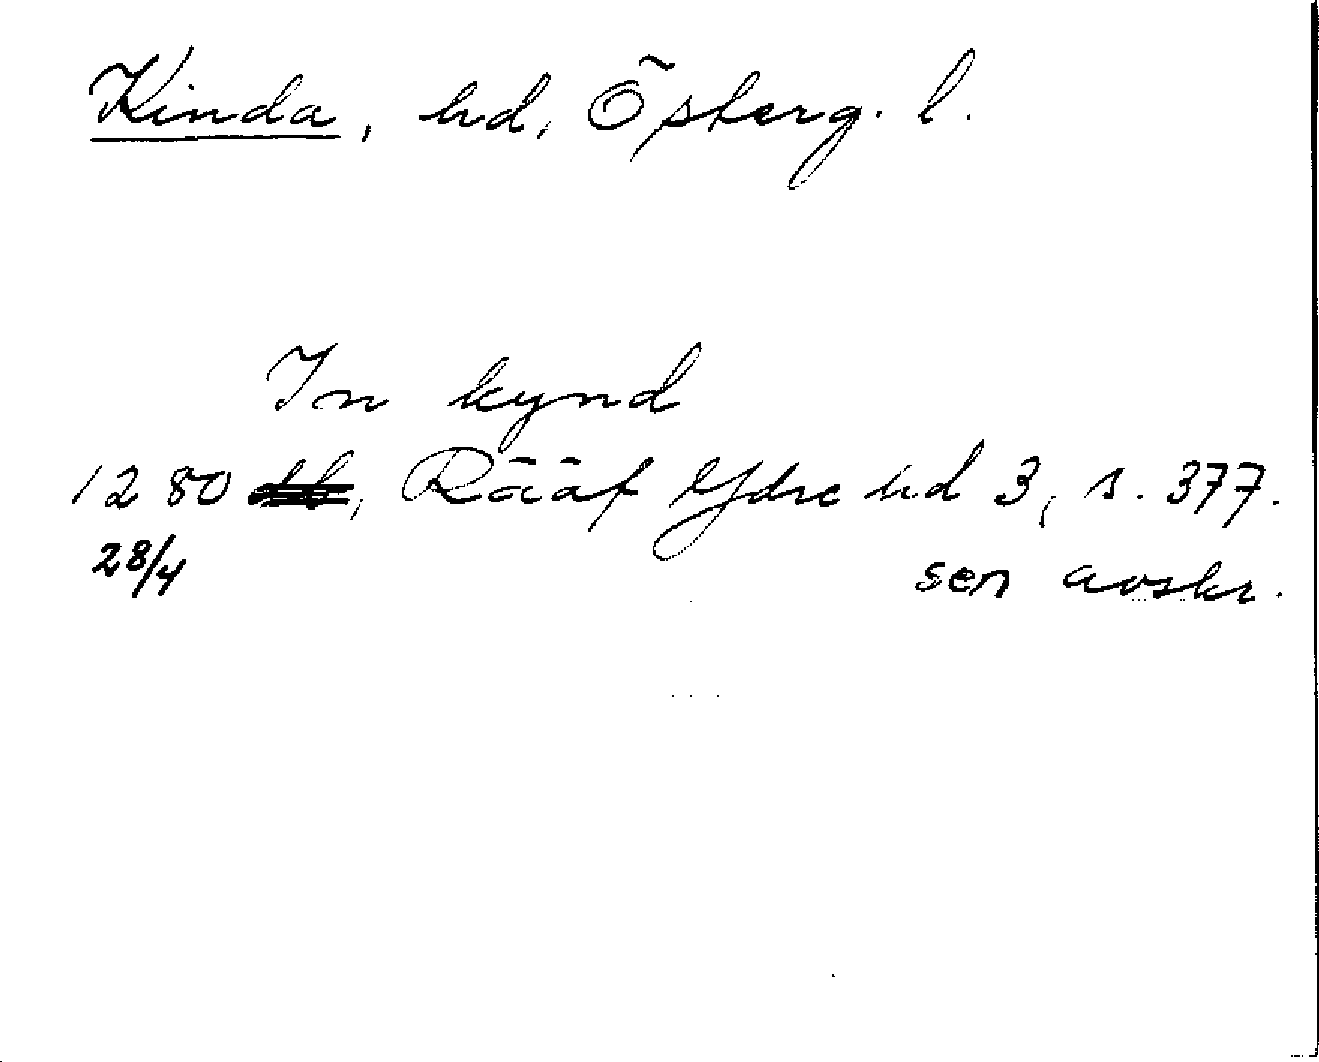 Kinda, hd, Österg. l.
In kynd
1280, Rääf Ydre hd 3, s. 377.
28/4 sen avskr.